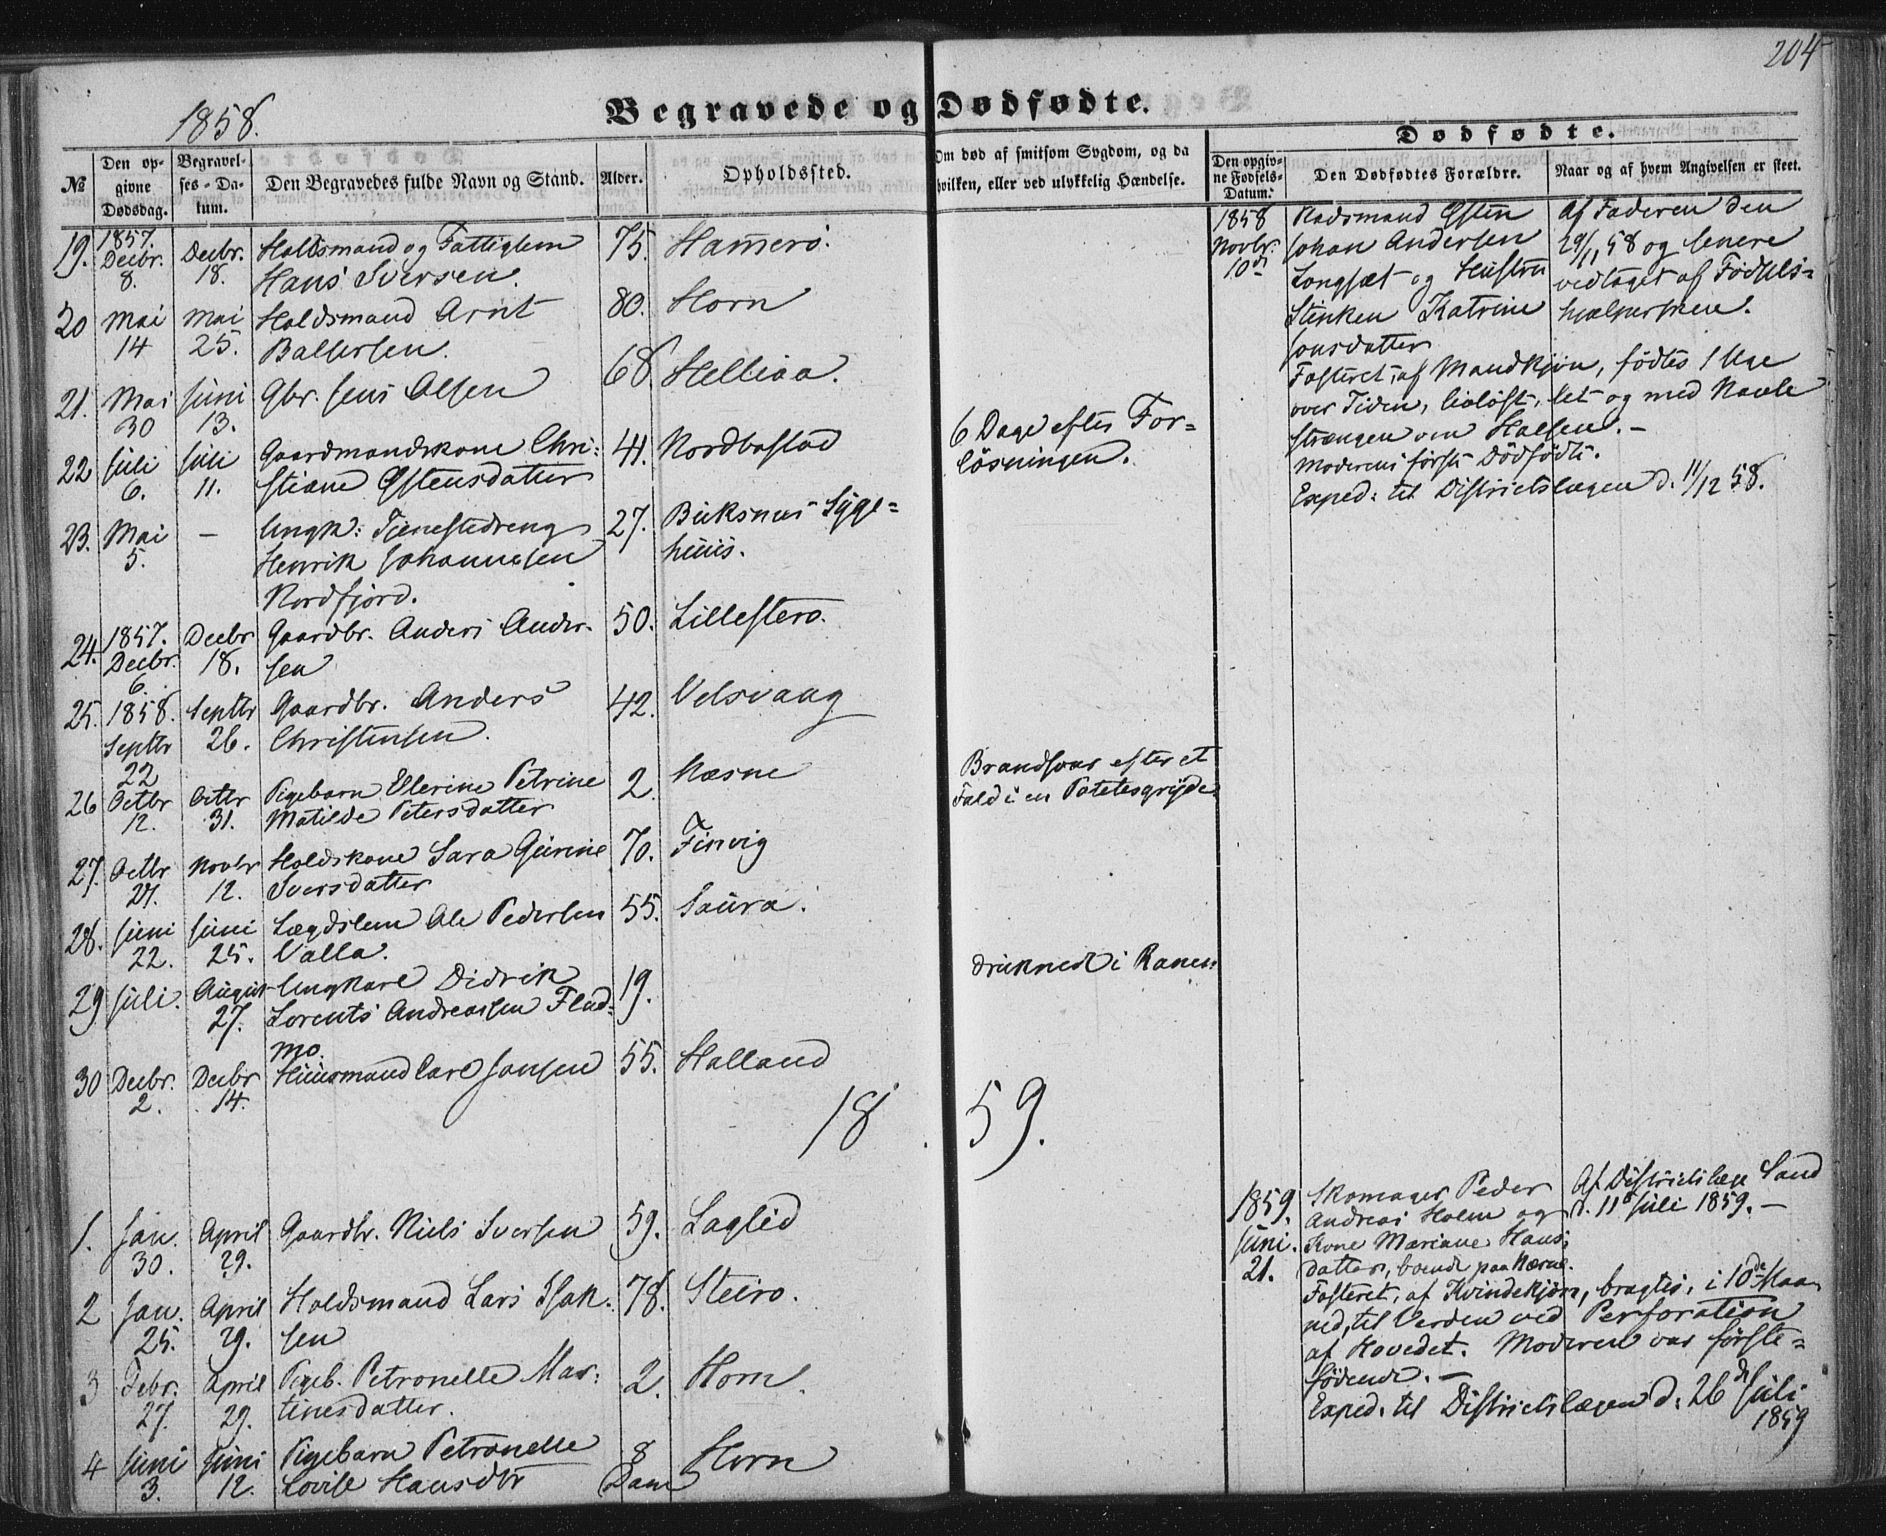 204
1858.
Begravede og Dødfødte.
Dødfødte.
№ | Den opgivne Dødsdag. | Begravelses-Datum. | Den Begravedes fulde Navn og Stand. | Alder. | Opholdssted. | Om død af smitsom Sygdom, og da hvilken, eller ved ulykkelig Hændelse. | Den opgivne Fødsels-Datum. | Den Dødfødtes Forældre. | Naar og af hvem Angivelsen er skeet.
19. 1857. Decbr. 8. Decbr. 18. Holdsmand og Fattiglem
Hans Iversen. 75. Hamerø.
20 Mai 14 Mai 25. Holdsmand Arnt
Baltsersen. 80. Horn
21. Mai 30 Juni 13. Gbr. Jens Olsen 68. Helliaa.
22 Juli 6. Juli 11. Gaardmandskone Chri=
stiane Østensdatter 41. Nordbostad 6 Dage efter For=
løsningen.
23. Mai 5. — Ungk: Tjenestedreng
Henrik Johannesen
Nordfjord. 27. Buksnes Syge=
huus.
24. 1857. Decbr. 6. Decbr 18. Gaardbr. Anders Ander-
sen 50. Lillestero.
25. 1858. Septbr 22 Septbr 26. Gaardbr. Anders
Christensen. 42. Velsvaag
26 Octbr 12. Octbr 31. Pigebarn Ellerine Petrine
Matilde Petersdatter 2. Næsne Brandsaar efter et
Fald i en Potetesgryde.
27. Octbr 27. Novbr 12. Holdskone Sara Gurine
Iversdatter 70. Finvig
28. Juni 22. Juni 25. Lægdslem Ole Pedersen
Valla. 55. Saura.
29 Juli. August 27. Ungkarl Didrik
Lorents Andreassen Flad=
mo. 19. druknet i Ranen
30 Decbr. 2. Decbr 14. Huusmand Carl Jonsen 55. Halland
1858 Novbr. 10de Radsmand Østen
Johan Andersen
Longsæt og Hustru
Stinken Katrine
Jonsdatter
Af Faderen den
29/11 58 og senere
vedtaget af Fødsels=
hjælpersken.
Fosteret, af Mandkjøn, fødtes 1 Uge
over Tiden, livløst, let og med Navle
strængen om Halsen. —
Moderens første Dødfødte.
Exped: til Districtslægen d. 11/12 58.
1859.
1. Jan. 30. April 29. Gaardbr. Niels Iversen 59. Laglid
2 Jan. 25. April 29. Holdsmand Lars Isak-
sen 78. Steiro.
3 Febr. 27. April 29. Pigeb. Petronelle Mar=
tinesdatter. 2. Horn.
4 Juni 3. Juni 12. Pigebarn Petronelle
Lovise Hansdtr 8 Dage Horn
1859. Juni. 21. Skomager Peder
Andreas Holm og
Kone Mariane Hans
datter, boende paa Næsne.
Af Districtslæge Sand
d. 11te Juli 1859. —
Fosteret, af Kvindekjøn, bragtes, i 10de Maa
ned, til Verden ved Perforation
af Hovedet. Moderen var første=
fødende. —
Exped. til Districtslægen d. 26de Juli
1859